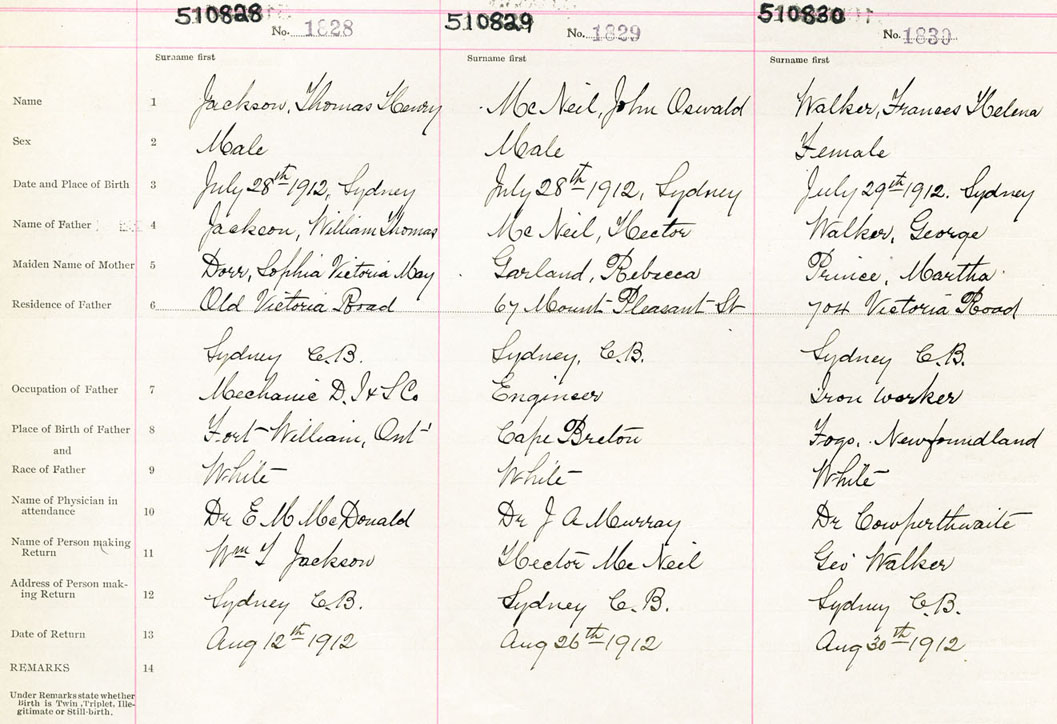 510828 510829 510830
No. 1828 No. 1829 No. 1830
Surname first Surname first Surname first
Name 1 Jackson, Thomas Henry McNeil, John Oswald Walker, Frances Helena
Sex 2 Male Male Female
Date and Place of Birth 3 July 28th 1912, Sydney July 28th 1912, Sydney July 29th 1912. Sydney
Name of Father 4 Jackson, William Thomas McNeil, Hector Walker, George
Maiden Name of Mother 5 Dorr, Sophia Victoria May Garland, Rebecca Prince, Martha
Residence of Father 6 Old Victoria Road 67 Mount Pleasant St 704 Victoria Road
Sydney C.B. Sydney, C.B. Sydney C.B.
Occupation of Father 7 Mechanic D. I & S Co Engineer Iron worker
Place of Birth of Father 8 Fort William, Ont Cape Breton Fogo, Newfoundland
and
Race of Father 9 White White White
Name of Physician in
attendance 10 Dr E M McDonald Dr J A Murray Dr Cowperthwaite
Name of Person making
Return 11 Wm T Jackson Hector McNeil Geo Walker
Address of Person mak-
ing Return 12 Sydney C.B. Sydney C.B. Sydney C.B.
Date of Return 13 Aug 12th 1912 Aug 26th 1912 Aug 30th 1912
REMARKS 14
Under Remarks state whether
Birth is Twin, Triplet, Ille-
gitimate or Still-birth.